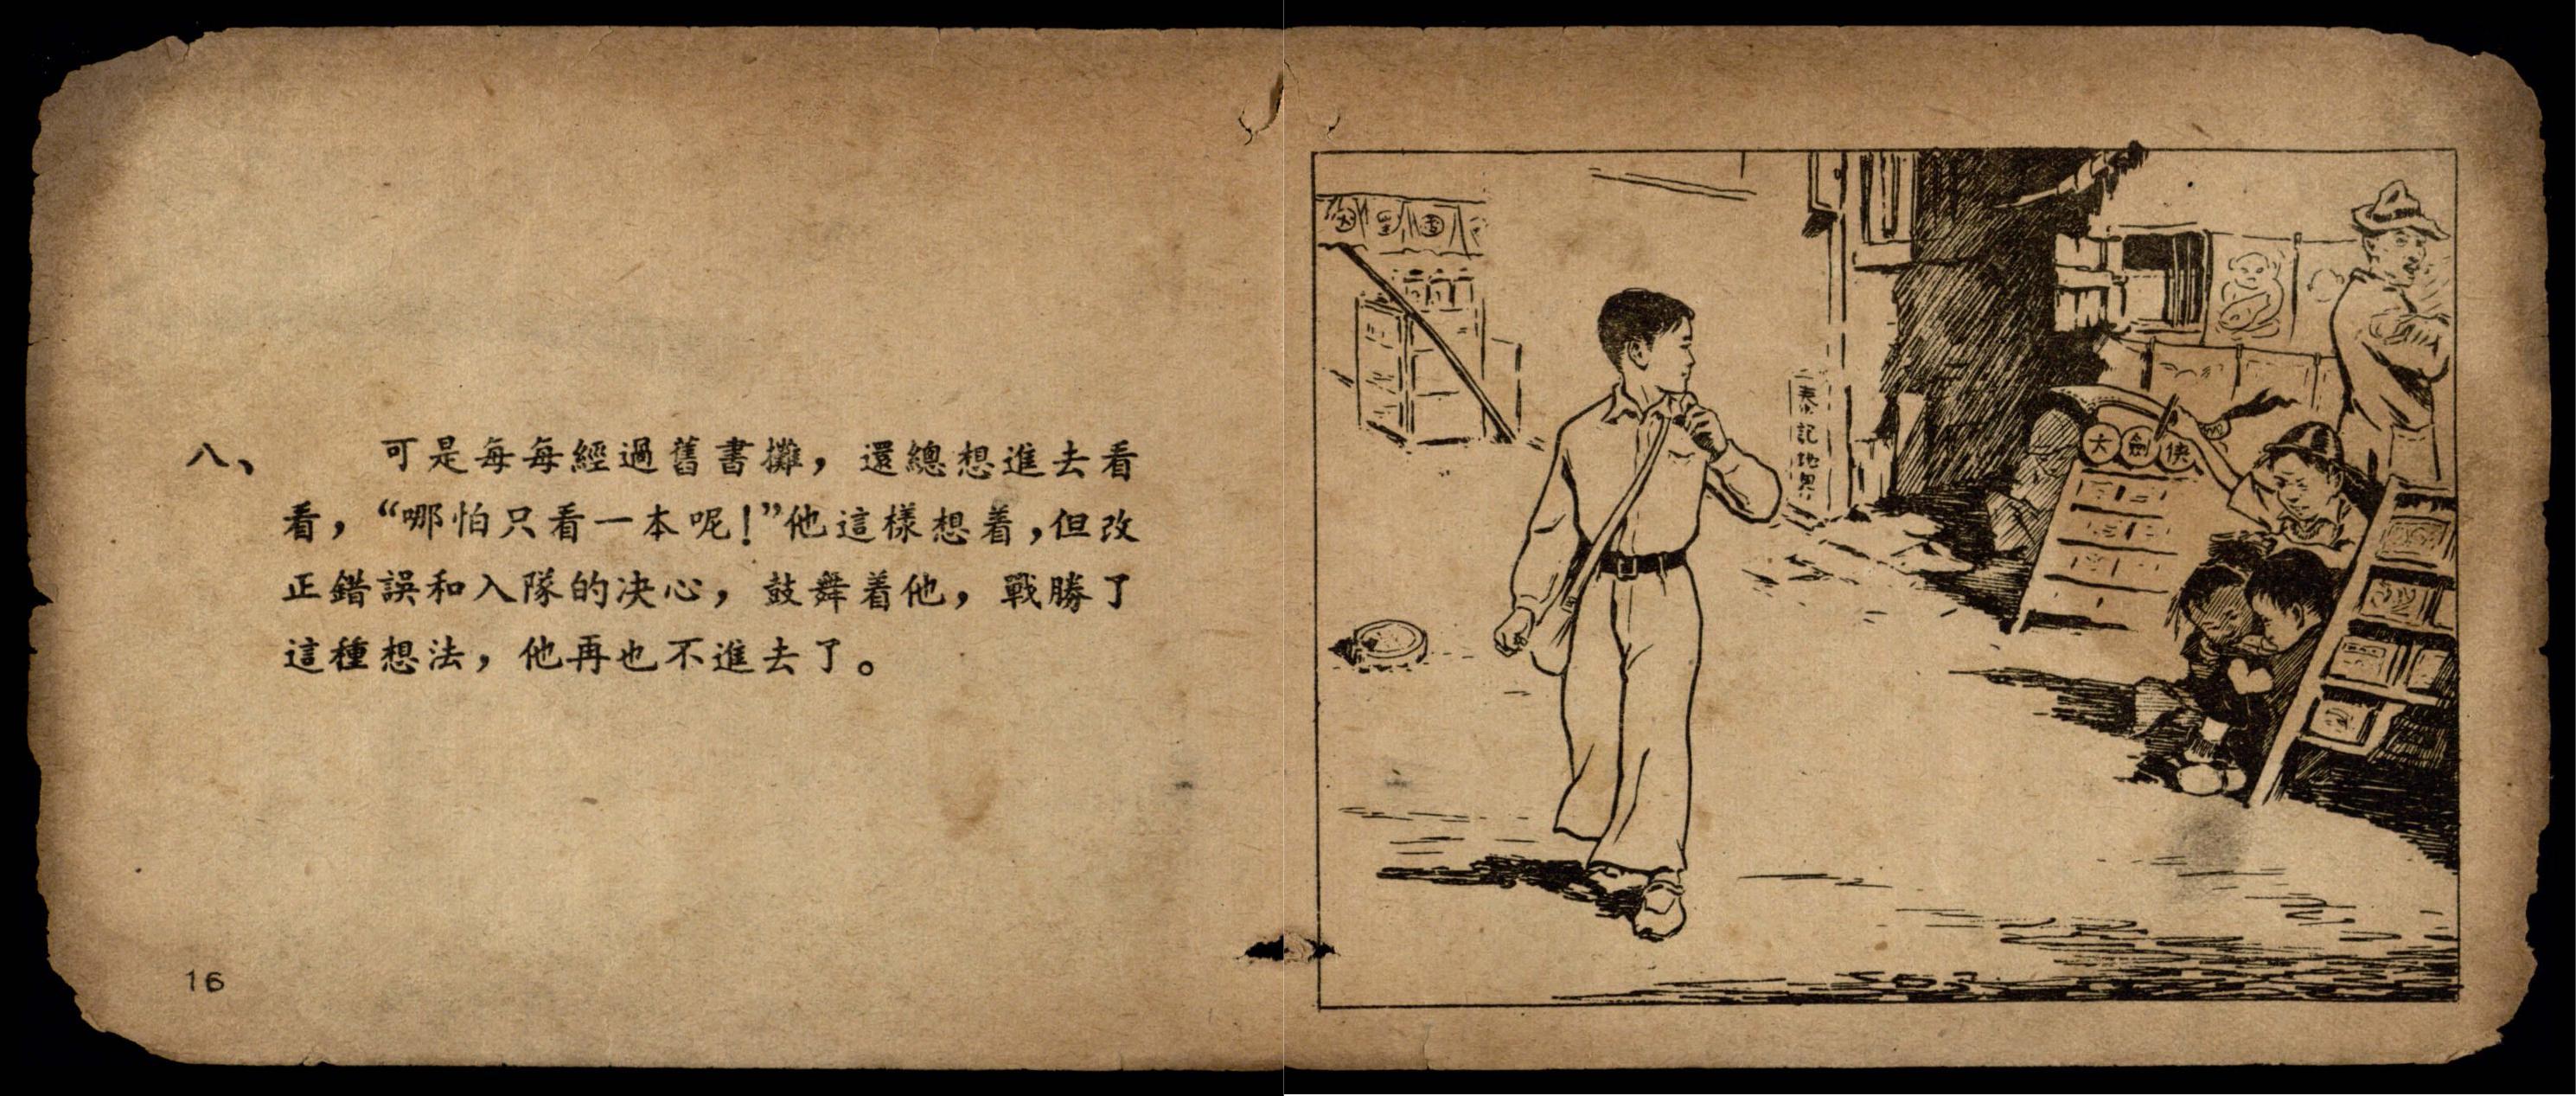 八、 可是每每經過舊書攤，還總想進去看
看，“哪怕只看一本呢！”他這樣想着，但改
正錯誤和入隊的决心，鼓舞着他，戰勝了
這種想法，他再也不進去了。
16
泰記地界
大劍俠